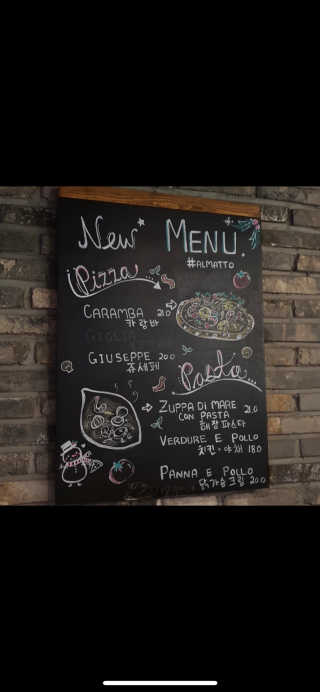 New MENU.
#ALMATTO
Pizza
CARAMBA 21.0
카람바
GIUSEPPE 20.0
쥬세페
Pasta
ZUPPA DI MARE 21.0
CON PASTA
해장파스타
VERDURE E POLLO
치킨·야채 18.0
PANNA E POLLO
닭가슴크림 20.0